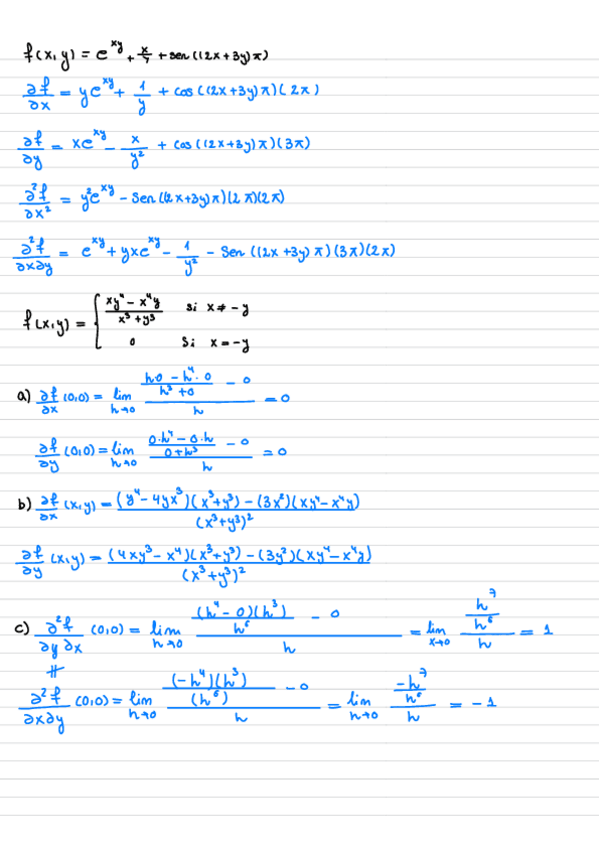 f(x,y) = e^{xy} + x/y + sen((2x+3y)π)
∂f/∂x = ye^{xy} + 1/y + cos((2x+3y)π)(2π)
∂f/∂y = xe^{xy} - x/y² + cos((2x+3y)π)(3π)
∂²f/∂x² = y²e^{xy} - sen((2x+3y)π)(2π)(2π)
∂²f/∂x∂y = e^{xy} + yxe^{xy} - 1/y² - sen((2x+3y)π)(3π)(2π)
f(x,y) = { (xy⁴ - x⁴y)/(x³+y³) si x ≠ -y
0 si x = -y
a) ∂f/∂x (0,0) = lim h→0 ((h·0 - h⁴·0)/(h³+0) - 0)/h = 0
∂f/∂y (0,0) = lim h→0 ((0·h⁴ - 0·h)/(0+h³) - 0)/h = 0
b) ∂f/∂x (x,y) = ((y⁴ - 4yx³)(x³+y³) - (3x²)(xy⁴ - x⁴y))/(x³+y³)²
∂f/∂y (x,y) = ((4xy³ - x⁴)(x³+y³) - (3y²)(xy⁴ - x⁴y))/(x³+y³)²
c) ∂²f/∂y∂x (0,0) = lim h→0 ((h⁴ - 0)(h³)/h⁶ - 0)/h = lim x→0 (h⁷/h⁶)/h = 1
≠
∂²f/∂x∂y (0,0) = lim h→0 ((-h⁴)(h³)/(h⁶) - 0)/h = lim h→0 (-h⁷/h⁶)/h = -1